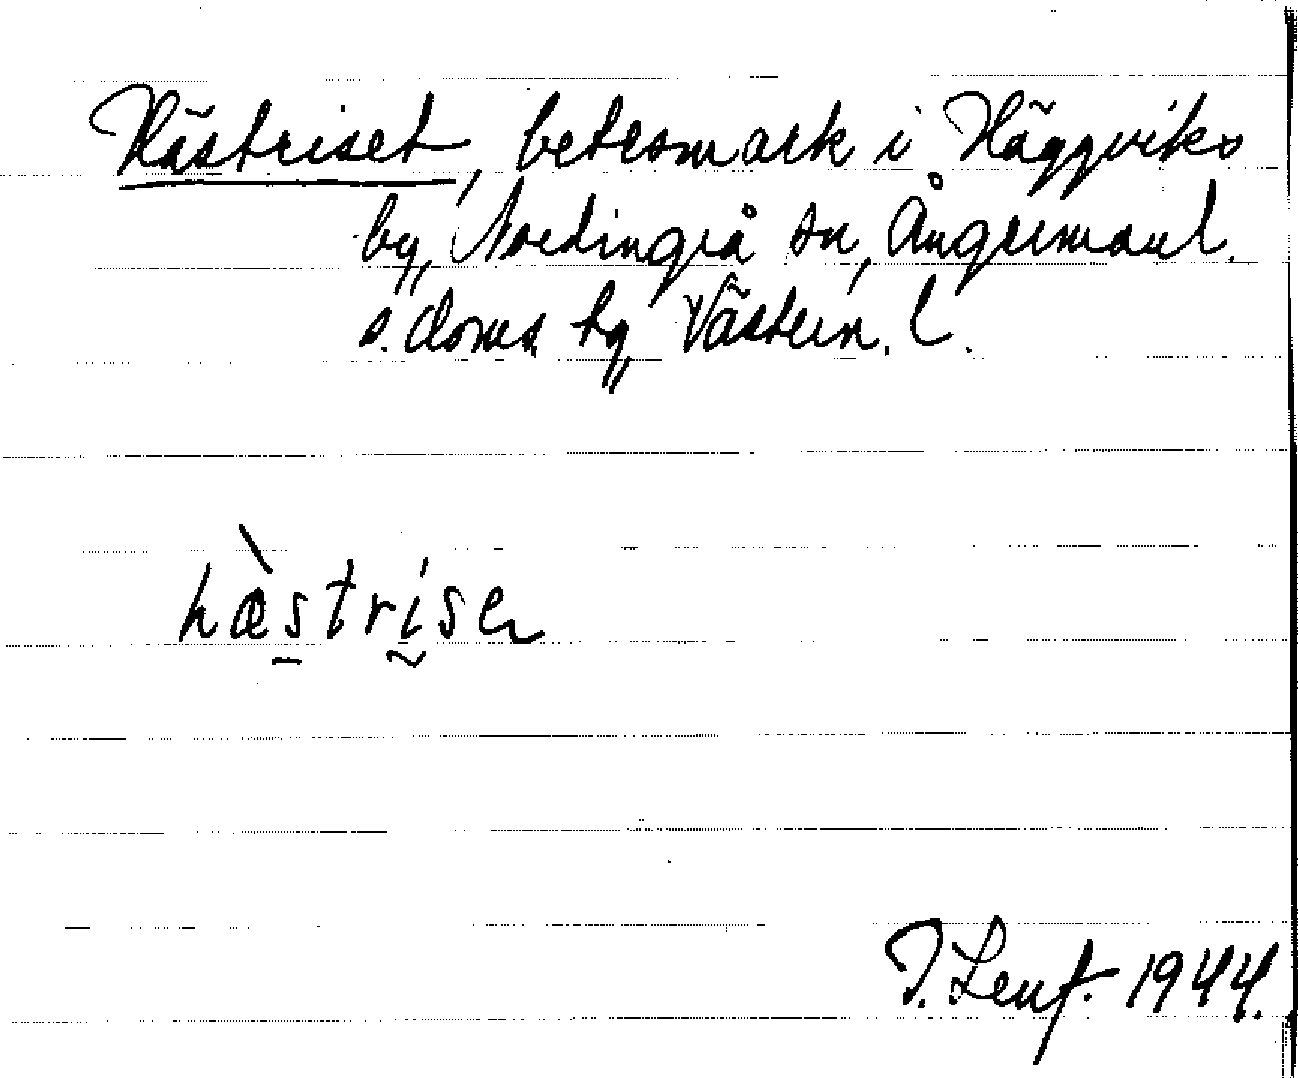 Hästriset, betesmark i Häggviks
by, Nordingrå sn, Ångermanl.
s. doms by, Västern. l.
hæ̀striser
J. Lenf. 1944.